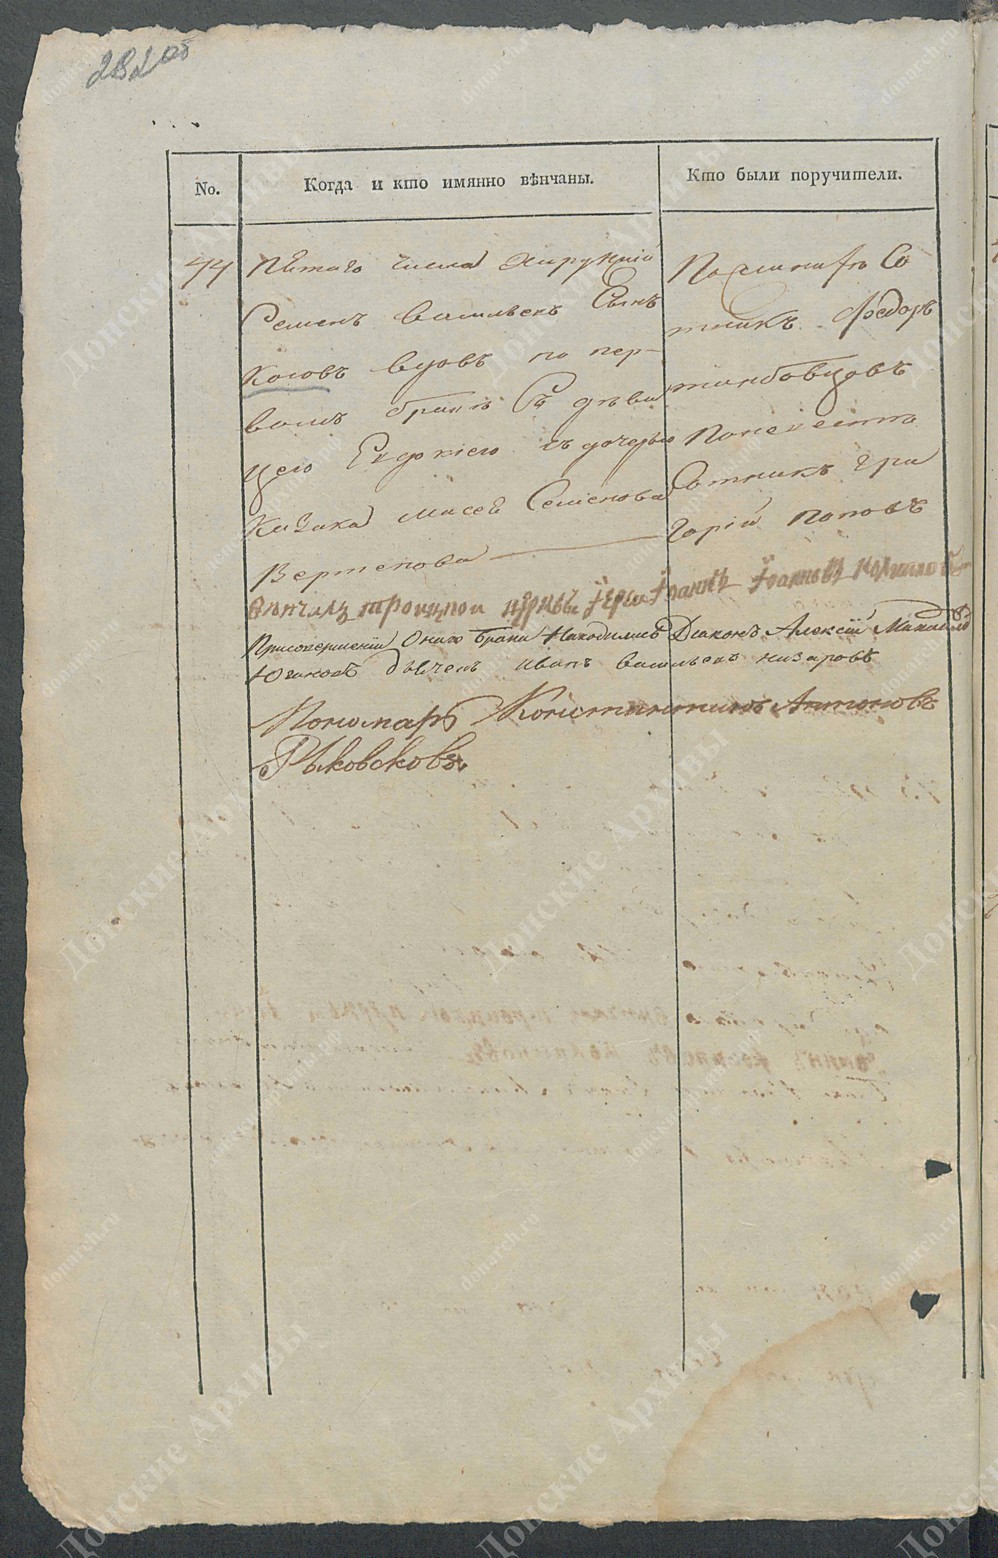 282об
No.
Когда и кто имянно вѣнчаны.
Кто были поручители.
44
Пятаго числа Хорунжій
Семенъ Васильевъ Сынъ
Косовъ вдовъ по пер-
вомъ бракѣ Съ дѣви
цею Евдокіею съ дочерью
Казака Мисея Семенова
Вертепова
По женихѣ Со
тникъ Ѳедоръ
тинбовцовъ
По невестѣ
Сотникъ Гри
горій Поповъ
Вѣнчалъ троицкой церкви Іерей Іоаннъ Іоанновъ
При совершеніи Онаго Брака Находились Діаконъ Алексій Михайловъ
Югановъ дьячекъ Иванъ Васильевъ Назаровъ
Пономарь Константинъ Антоновъ
Рыковсковъ
Донские Архивы
donarch.ru